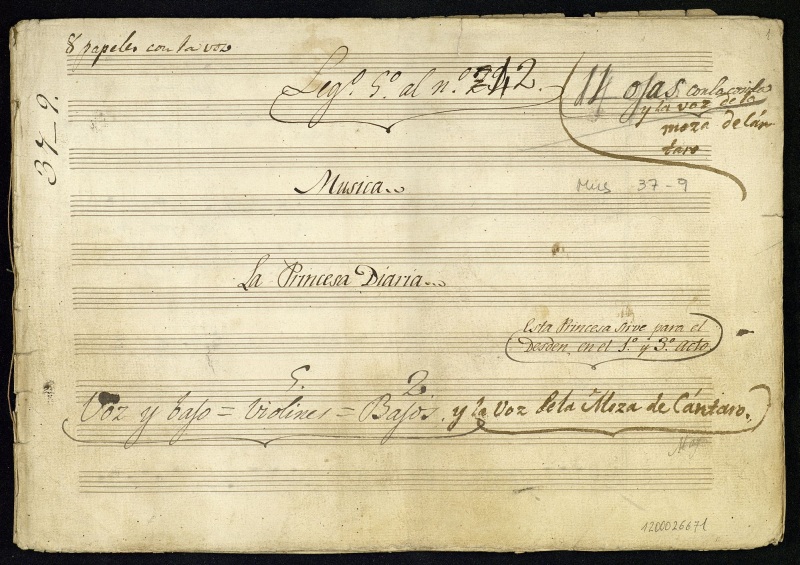 8 papeles con la voz
Leg.º 5.º al n.º 242.
14 ojas con la copla
y la voz de la
moza de Cán-
taro
37_9.
Musica
Mus 37-9
La Princesa Diaria
Esta Princesa sirve para el
Desden, en el 1.º y 3.º acto
5. 2.
Voz y bajo = Violines = Bajos. y la Voz de la Moza de Cántaro.
1200026671